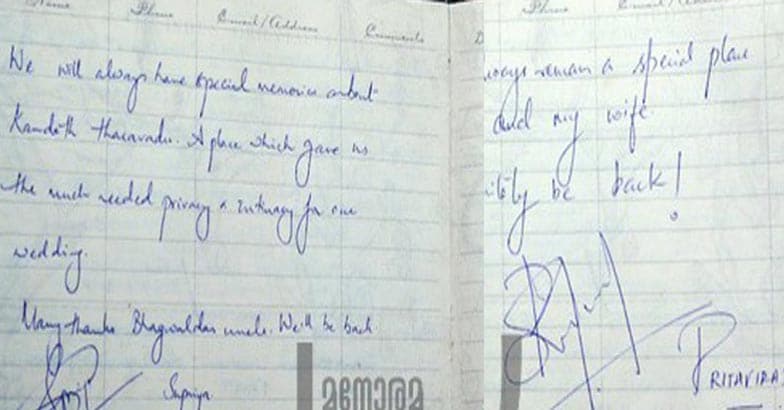 Name Phone Email/Address Comments
We will always have special memories about
Kandoth tharavadu. A place which gave us
the much needed privacy & intimacy for our
wedding.
Many thanks Bhagwaldas uncle. We'll be back
Supriya
Phone Email/Address
ways remain a special place
and my wife.
be back!
PRITHVIRAJ
മനോരമ